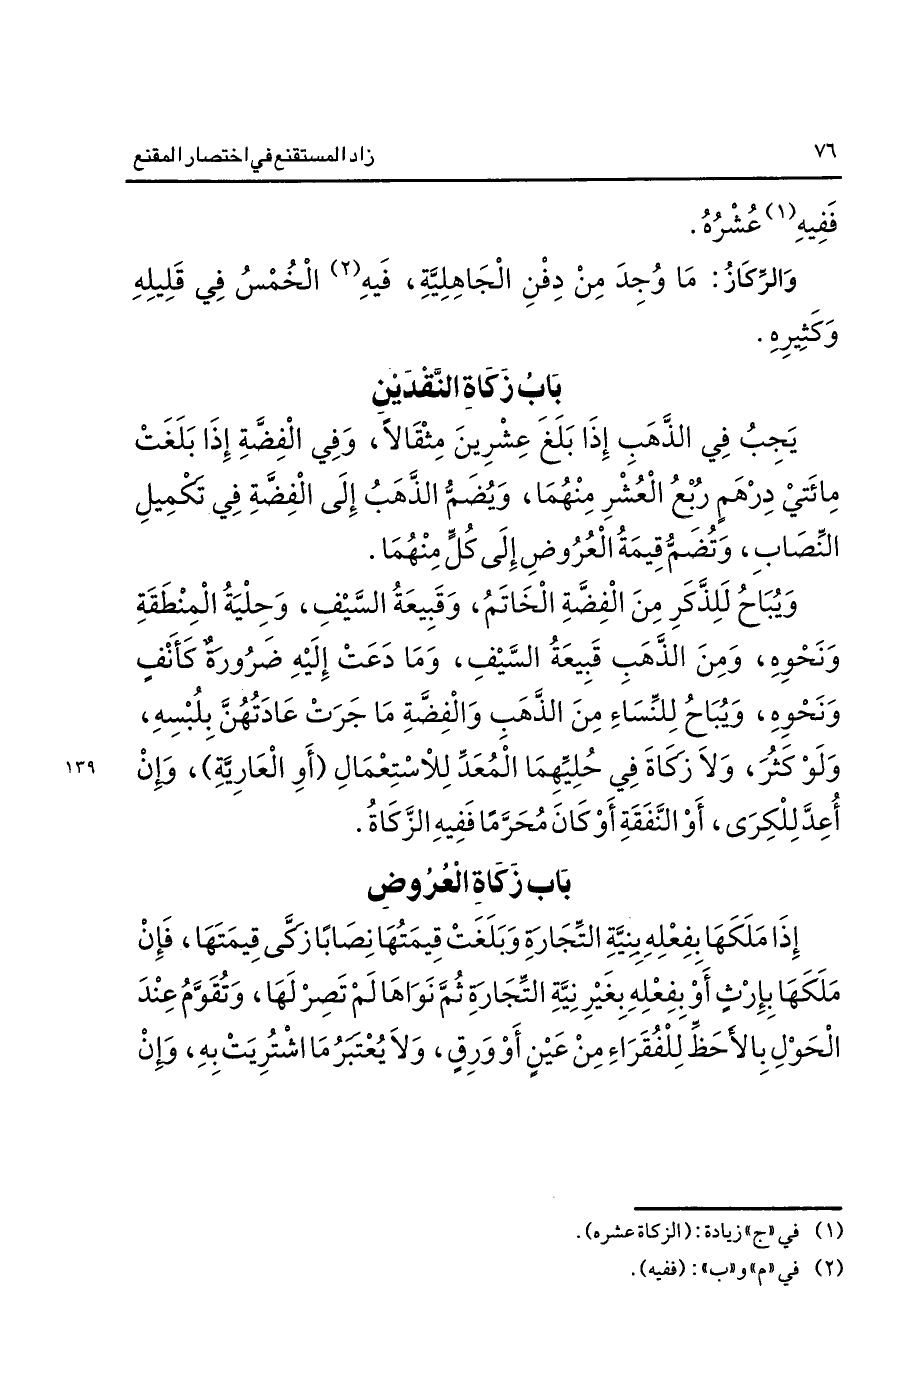 ٧٦
زاد المستقنع في اختصار المقنع
فَفِيهِ(١) عُشْرُهُ.
وَالرِّكَازُ: مَا وُجِدَ مِنْ دِفْنِ الْجَاهِلِيَّةِ، فَيهِ(٢) الْخُمْسُ فِي قَلِيلِهِ
وَكَثِيرِهِ.
بَابُ زَكَاةِ النَّقْدَيْنِ
يَجِبُ فِي الذَّهَبِ إِذَا بَلَغَ عِشْرِينَ مِثْقَالاً، وَفِي الْفِضَّةِ إِذَا بَلَغَتْ
مِائَتيْ دِرْهَمٍ رُبْعُ الْعُشْرِ مِنْهُمَا، وَيُضَمُّ الذَّهَبُ إِلَى الْفِضَّةِ فِي تَكْمِيلِ
النِّصَابِ، وَتُضَمُّ قِيمَةُ الْعُرُوضِ إِلَى كُلٍّ مِنْهُمَا.
وَيُبَاحُ لَلِذَّكَرِ مِنَ الْفِضَّةِ الْخَاتَمُ، وَقَبِيعَةُ السَّيْفِ، وَحِلْيَةُ الْمِنْطَقَةِ
وَنَحْوِهِ، وَمِنَ الذَّهَبِ قَبِيعَةُ السَّيْفِ، وَمَا دَعَتْ إِلَيْهِ ضَرُورَةٌ كَأَنْفٍ
وَنَحْوِهِ، وَيُبَاحُ لِلنِّسَاءِ مِنَ الذَّهَبِ وَالْفِضَّةِ مَا جَرَتْ عَادَتُهُنَّ بِلُبْسِهِ،
وَلَوْ كَثُرَ، وَلاَ زَكَاةَ فِي حُلِيِّهِمَا الْمُعَدِّ لِلاْسْتِعْمَالِ (أَوِ الْعَارِيَّةِ)، وَإِنْ
١٣٩
أُعِدَّ لِلْكِرَى، أَوْ النَّفَقَةِ أَوْ كَانَ مُحَرَّمًا فَفِيهِ الزَّكَاةُ.
بَاب زَكَاةِ الْعُرُوضِ
إِذَا مَلَكَهَا بِفِعْلِهِ بِنِيَّةِ التِّجَارَةِ وَبَلَغَتْ قِيمَتُهَا نِصَابًا زَكَّى قِيمَتَهَا، فَإِنْ
مَلَكَهَا بِإِرْثٍ أَوْ بِفِعْلِهِ بِغَيْرِ نِيَّةِ التِّجَارَةِ ثُمَّ نَوَاهَا لَمْ تَصِرْ لَهَا، وَتُقَوَّمُ عِنْدَ
الْحَوْلِ بِالأَحَظِّ لِلْفُقَرَاءِ مِنْ عَيْنٍ أَوْ وَرِقٍ، وَلاَ يُعْتَبَرُ مَا اشْتُرِيَتْ بِهِ، وَإِنْ
(١) في «ج» زيادة: (الزكاة عشره).
(٢) في «م» و«ب»: (ففيه).